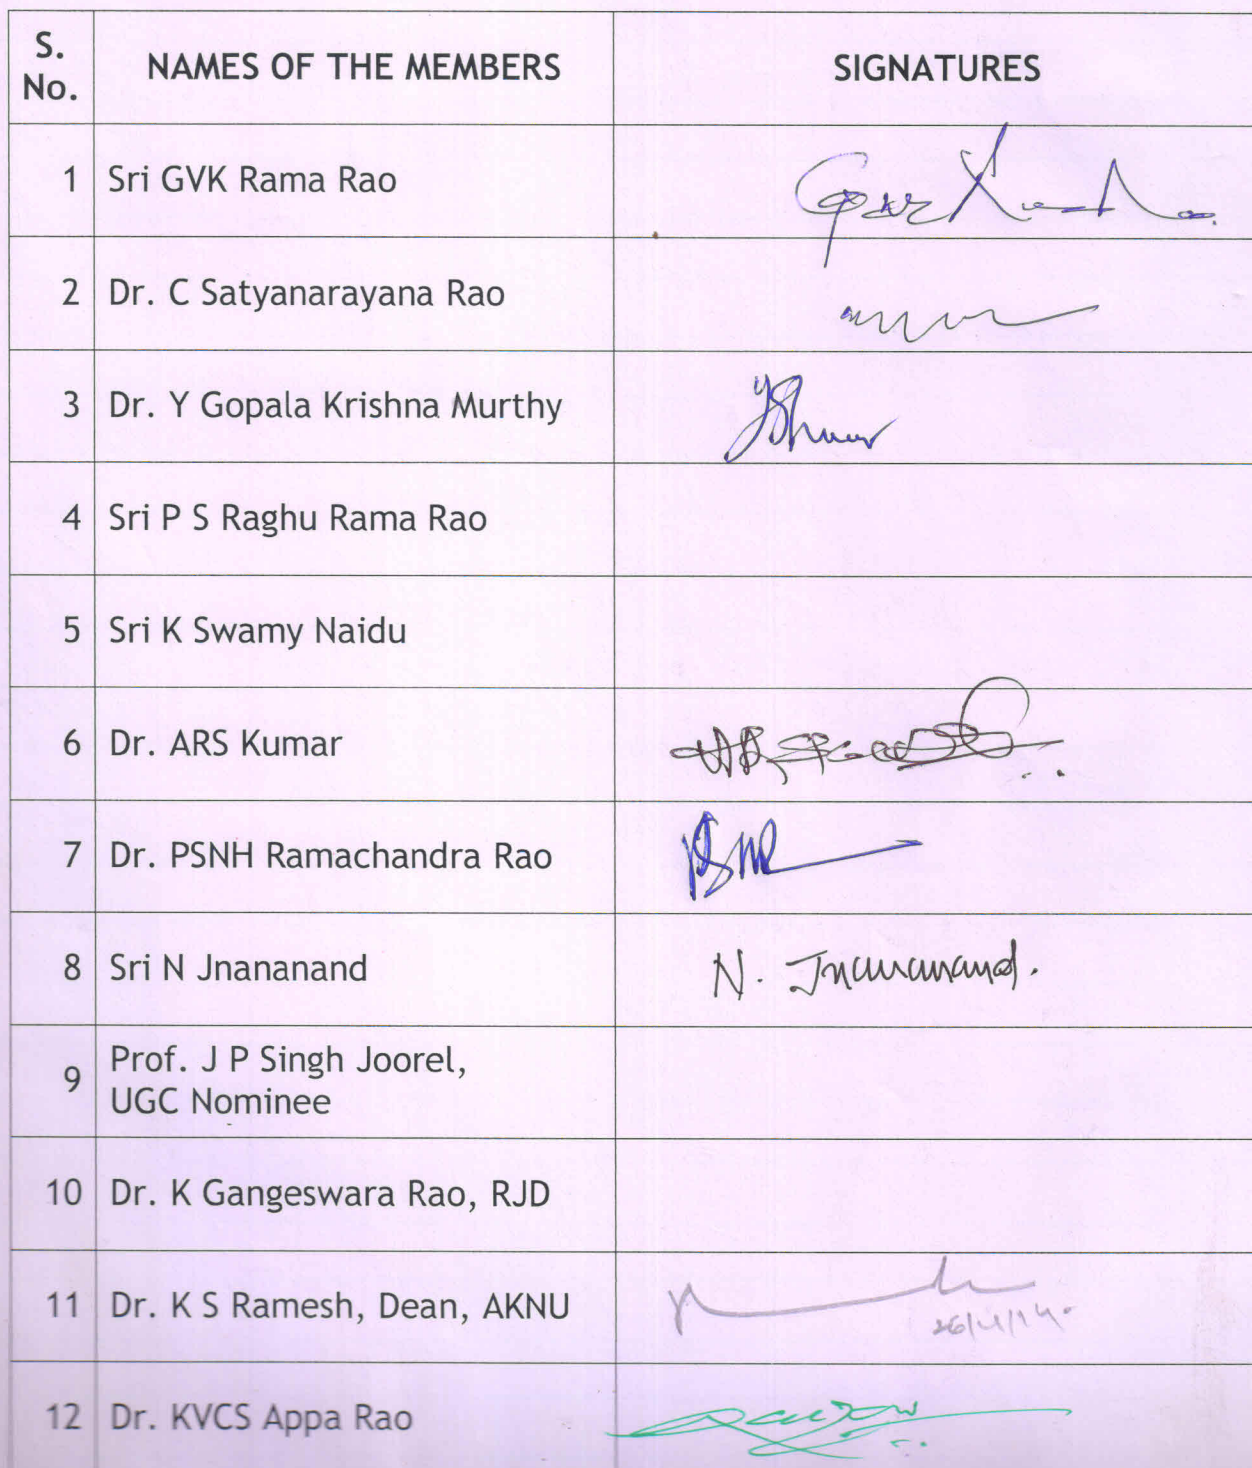 S. No. NAMES OF THE MEMBERS SIGNATURES
1 Sri GVK Rama Rao
2 Dr. C Satyanarayana Rao
3 Dr. Y Gopala Krishna Murthy
4 Sri P S Raghu Rama Rao
5 Sri K Swamy Naidu
6 Dr. ARS Kumar
7 Dr. PSNH Ramachandra Rao
8 Sri N Jnananand N. Jnananand.
9 Prof. J P Singh Joorel,
UGC Nominee
10 Dr. K Gangeswara Rao, RJD
11 Dr. K S Ramesh, Dean, AKNU
12 Dr. KVCS Appa Rao